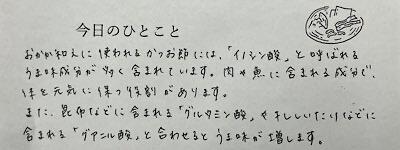 今日のひとこと
おかか和えに使われるかつお節には、「イノシン酸」と呼ばれる
うま味成分が多く含まれています。肉や魚に含まれる成分で、
体を元気に保つ役割があります。
また、昆布などに含まれる「グルタミン酸」やしいたけなどに
含まれる「グアニル酸」と合わせるとうま味が増します。